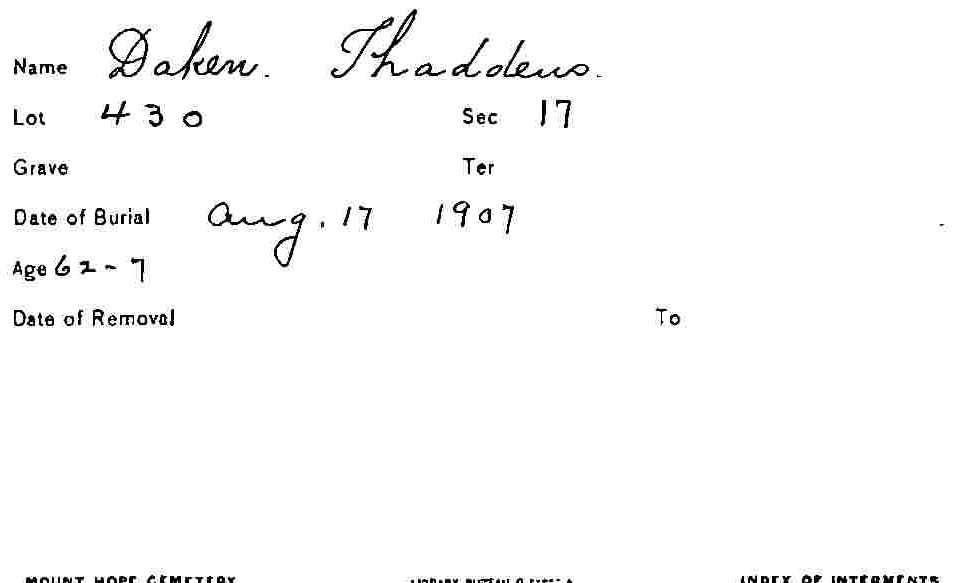 Name Daken. Thaddeus.
Lot 430 Sec 17
Grave Ter
Date of Burial Aug. 17 1907
Age 62-7
Date of Removal To
MOUNT HOPE CEMETERY LIBRARY BUREAU INDEX OF INTERMENTS